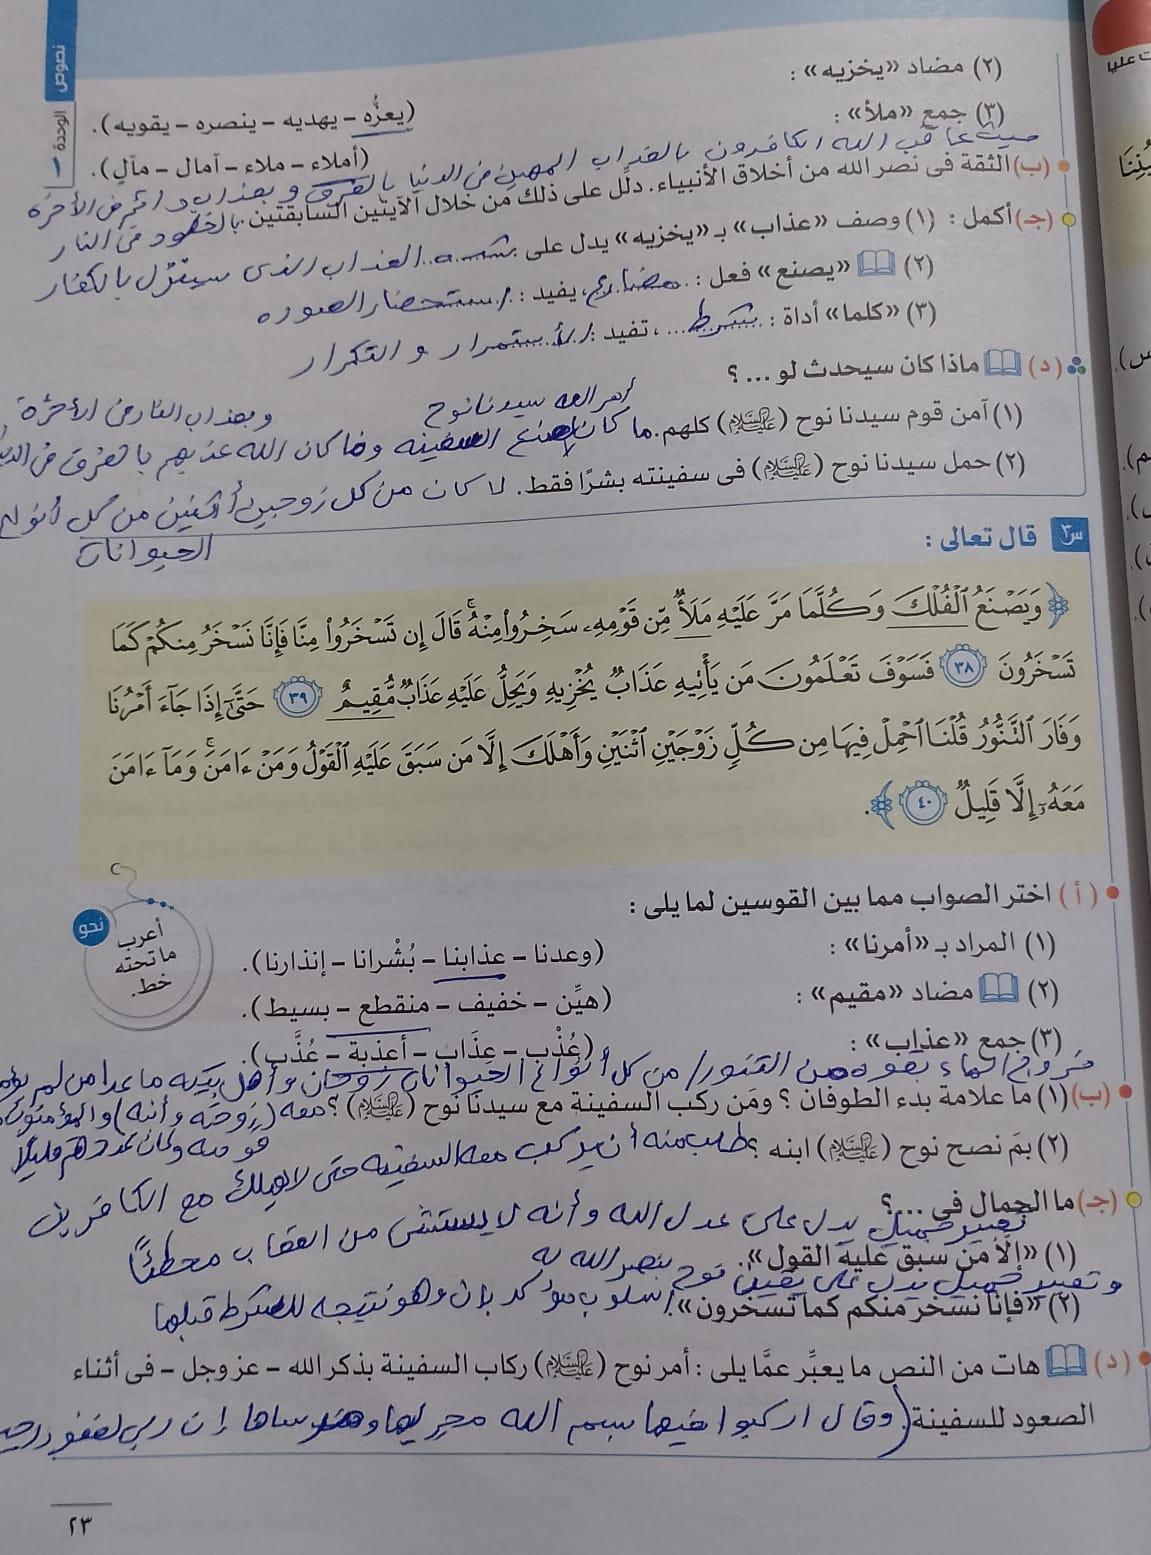 نصوص
الوحدة ١
ت عليا
(٢) مضاد «يخزيه» :
(يعزُّه - يهديه - ينصره - يقويه).
(٣) جمع «ملأ» :
(أملاء - ملاء - آمال - مآلٍ).
حيث عاقب الله الكافرون بالعذاب المهين فى الدنيا بالغرق وبعذاب دائم فى الأخرة
(ب) الثقة فى نصر الله من أخلاق الأنبياء. دلِّل على ذلك من خلال الآيتين السابقتين.
بالخلود فى النار
(جـ) أكمل : (١) وصف «عذاب» بـ «يخزيه» يدل على شدة العذاب الذى سينزل بالكفار
(٢) «يصنع» فعل : مضارع، يفيد : استحضار الصوره
(٣) «كلما» أداة : شرط ...، تفيد : الأستمرار و التكرار
(د) ماذا كان سيحدث لو ... ؟
أمر الله سيدنا نوح
وبعذاب النار فى الأخرة
(١) آمن قوم سيدنا نوح (عليه السلام) كلهم. ما كان لصنع السفينه وما كان الله عذبهم بالغرق فى الدنيا
(٢) حمل سيدنا نوح (عليه السلام) فى سفينته بشرًا فقط. لا كان من كل زوجين أثنين من كل أنواع
الحيوانات
س٣ قال تعالى :
﴿ وَيَصْنَعُ ٱلْفُلْكَ وَكُلَّمَا مَرَّ عَلَيْهِ مَلَأٌ مِّن قَوْمِهِۦ سَخِرُوا۟ مِنْهُ ۚ قَالَ إِن تَسْخَرُوا۟ مِنَّا فَإِنَّا نَسْخَرُ مِنكُمْ كَمَا
تَسْخَرُونَ ٣٨ فَسَوْفَ تَعْلَمُونَ مَن يَأْتِيهِ عَذَابٌ يُخْزِيهِ وَيَحِلُّ عَلَيْهِ عَذَابٌ مُّقِيمٌ ٣٩ حَتَّىٰٓ إِذَا جَآءَ أَمْرُنَا
وَفَارَ ٱلتَّنُّورُ قُلْنَا ٱحْمِلْ فِيهَا مِن كُلٍّ زَوْجَيْنِ ٱثْنَيْنِ وَأَهْلَكَ إِلَّا مَن سَبَقَ عَلَيْهِ ٱلْقَوْلُ وَمَنْ ءَامَنَ ۚ وَمَآ ءَامَنَ
مَعَهُۥٓ إِلَّا قَلِيلٌ ٤٠ ﴾.
(أ) اختر الصواب مما بين القوسين لما يلى :
نحو
أعرب
ما تحته
خط.
(١) المراد بـ «أمرنا» :
(وعدنا - عذابنا - بُشْرانا - إنذارنا).
(٢) مضاد «مقيم» :
(هيِّن - خفيف - منقطع - بسيط).
(٣) جمع «عذاب» :
(عُذْب - عِذَاب - أعذبة - عُذَّب).
خروج الماء بقوه من التنور/ من كل أنواع الحيوانات زوجان وأهل بيته ما عدا من لم يؤمن
(ب) (١) ما علامة بدء الطوفان ؟ ومَن ركب السفينة مع سيدنا نوح (عليه السلام) ؟ معه (زوجته وأبنه) والمؤمنون من
قومه وكان عددهم قليلاً
(٢) بمَ نصح نوح (عليه السلام) ابنه ؟ طلب منه أن يركب معه السفينه حتى لا يهلك مع الكافرين
(جـ) ما الجمال فى ...؟
تعبير جميل يدل على عدل الله وأنه لا يستثنى من العقاب مخطئاً
(١) «إلَّا من سبق عليه القول».
و تعبير جميل يدل على يقين نوح بنصر الله له
(٢) «فإنا نسخر منكم كما تسخرون»! أسلوب مؤكد بإن وهو نتيجه للشرط قبلها
(د) هات من النص ما يعبِّر عمَّا يلى : أمر نوح (عليه السلام) ركاب السفينة بذكر الله - عز وجل - فى أثناء
الصعود للسفينة (وقال اركبوا فيها بسم الله مجريها ومرساها إن ربى لغفور رحيم
٢٣